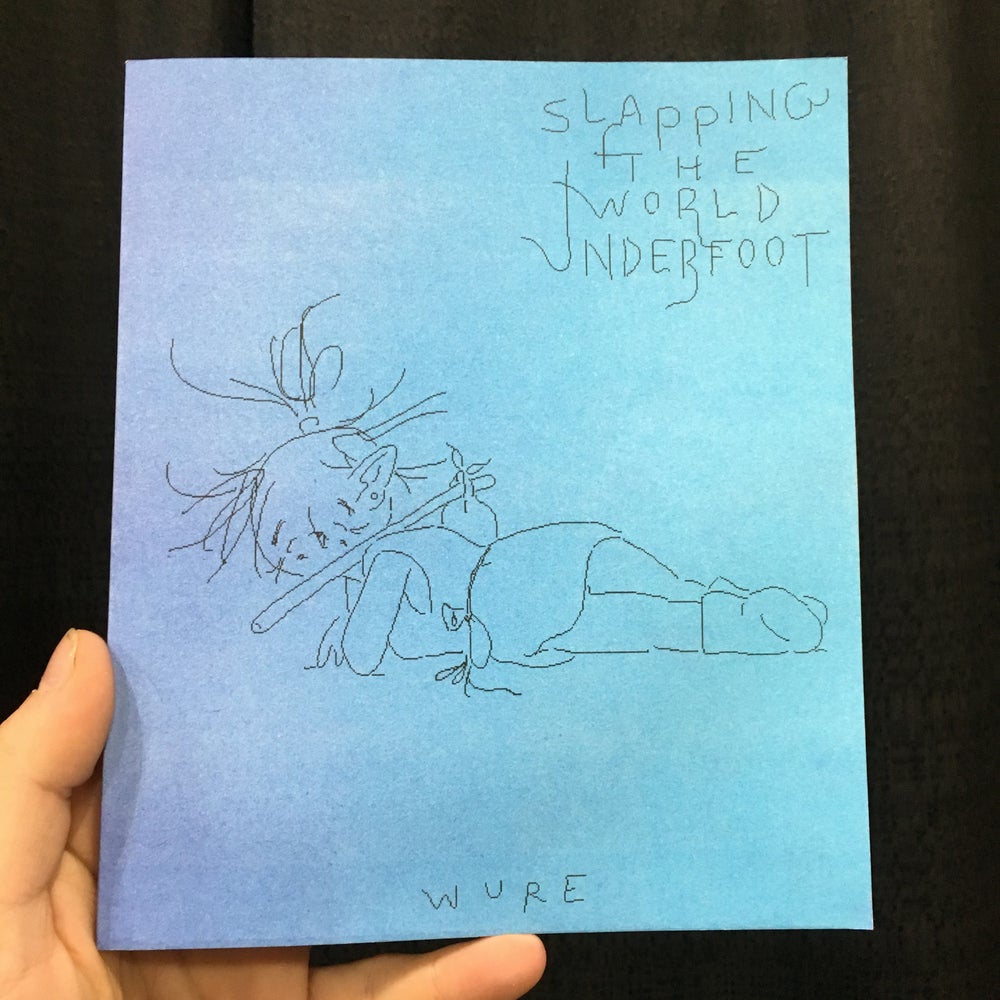 SLAPPING
THE
WORLD
UNDERFOOT
WURE